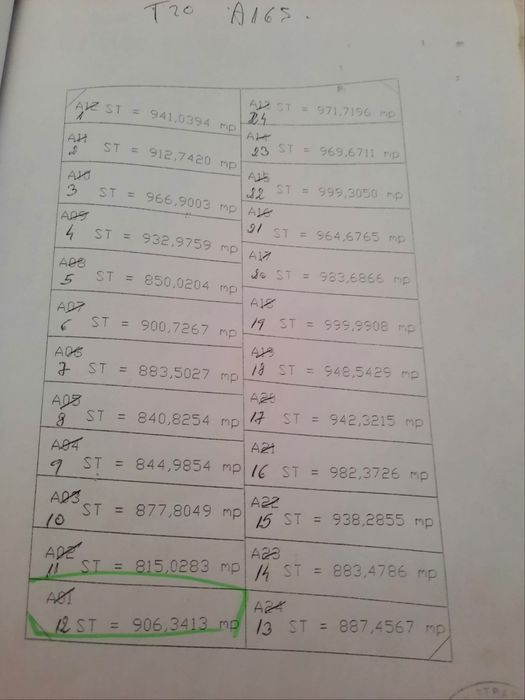 T20 A165.
A12
1 ST = 941,0394 mp
A11
2 ST = 912,7420 mp
A10
3 ST = 966,9003 mp
A09
4 ST = 932,9759 mp
A08
5 ST = 850,0204 mp
A07
6 ST = 900,7267 mp
A06
7 ST = 883,5027 mp
A05
8 ST = 840,8254 mp
A04
9 ST = 844,9854 mp
A03
10 ST = 877,8049 mp
A02
11 ST = 815,0283 mp
A01
12 ST = 906,3413 mp
A13 ST = 971,7196 mp
24
A14
23 ST = 969,6711 mp
A15
22 ST = 999,3050 mp
A16
21 ST = 964,6765 mp
A17
20 ST = 983,6866 mp
A18
19 ST = 999,9908 mp
A19
18 ST = 948,5429 mp
A20
17 ST = 942,3215 mp
A21
16 ST = 982,3726 mp
A22
15 ST = 938,2855 mp
A23
14 ST = 883,4786 mp
A24
13 ST = 887,4567 mp